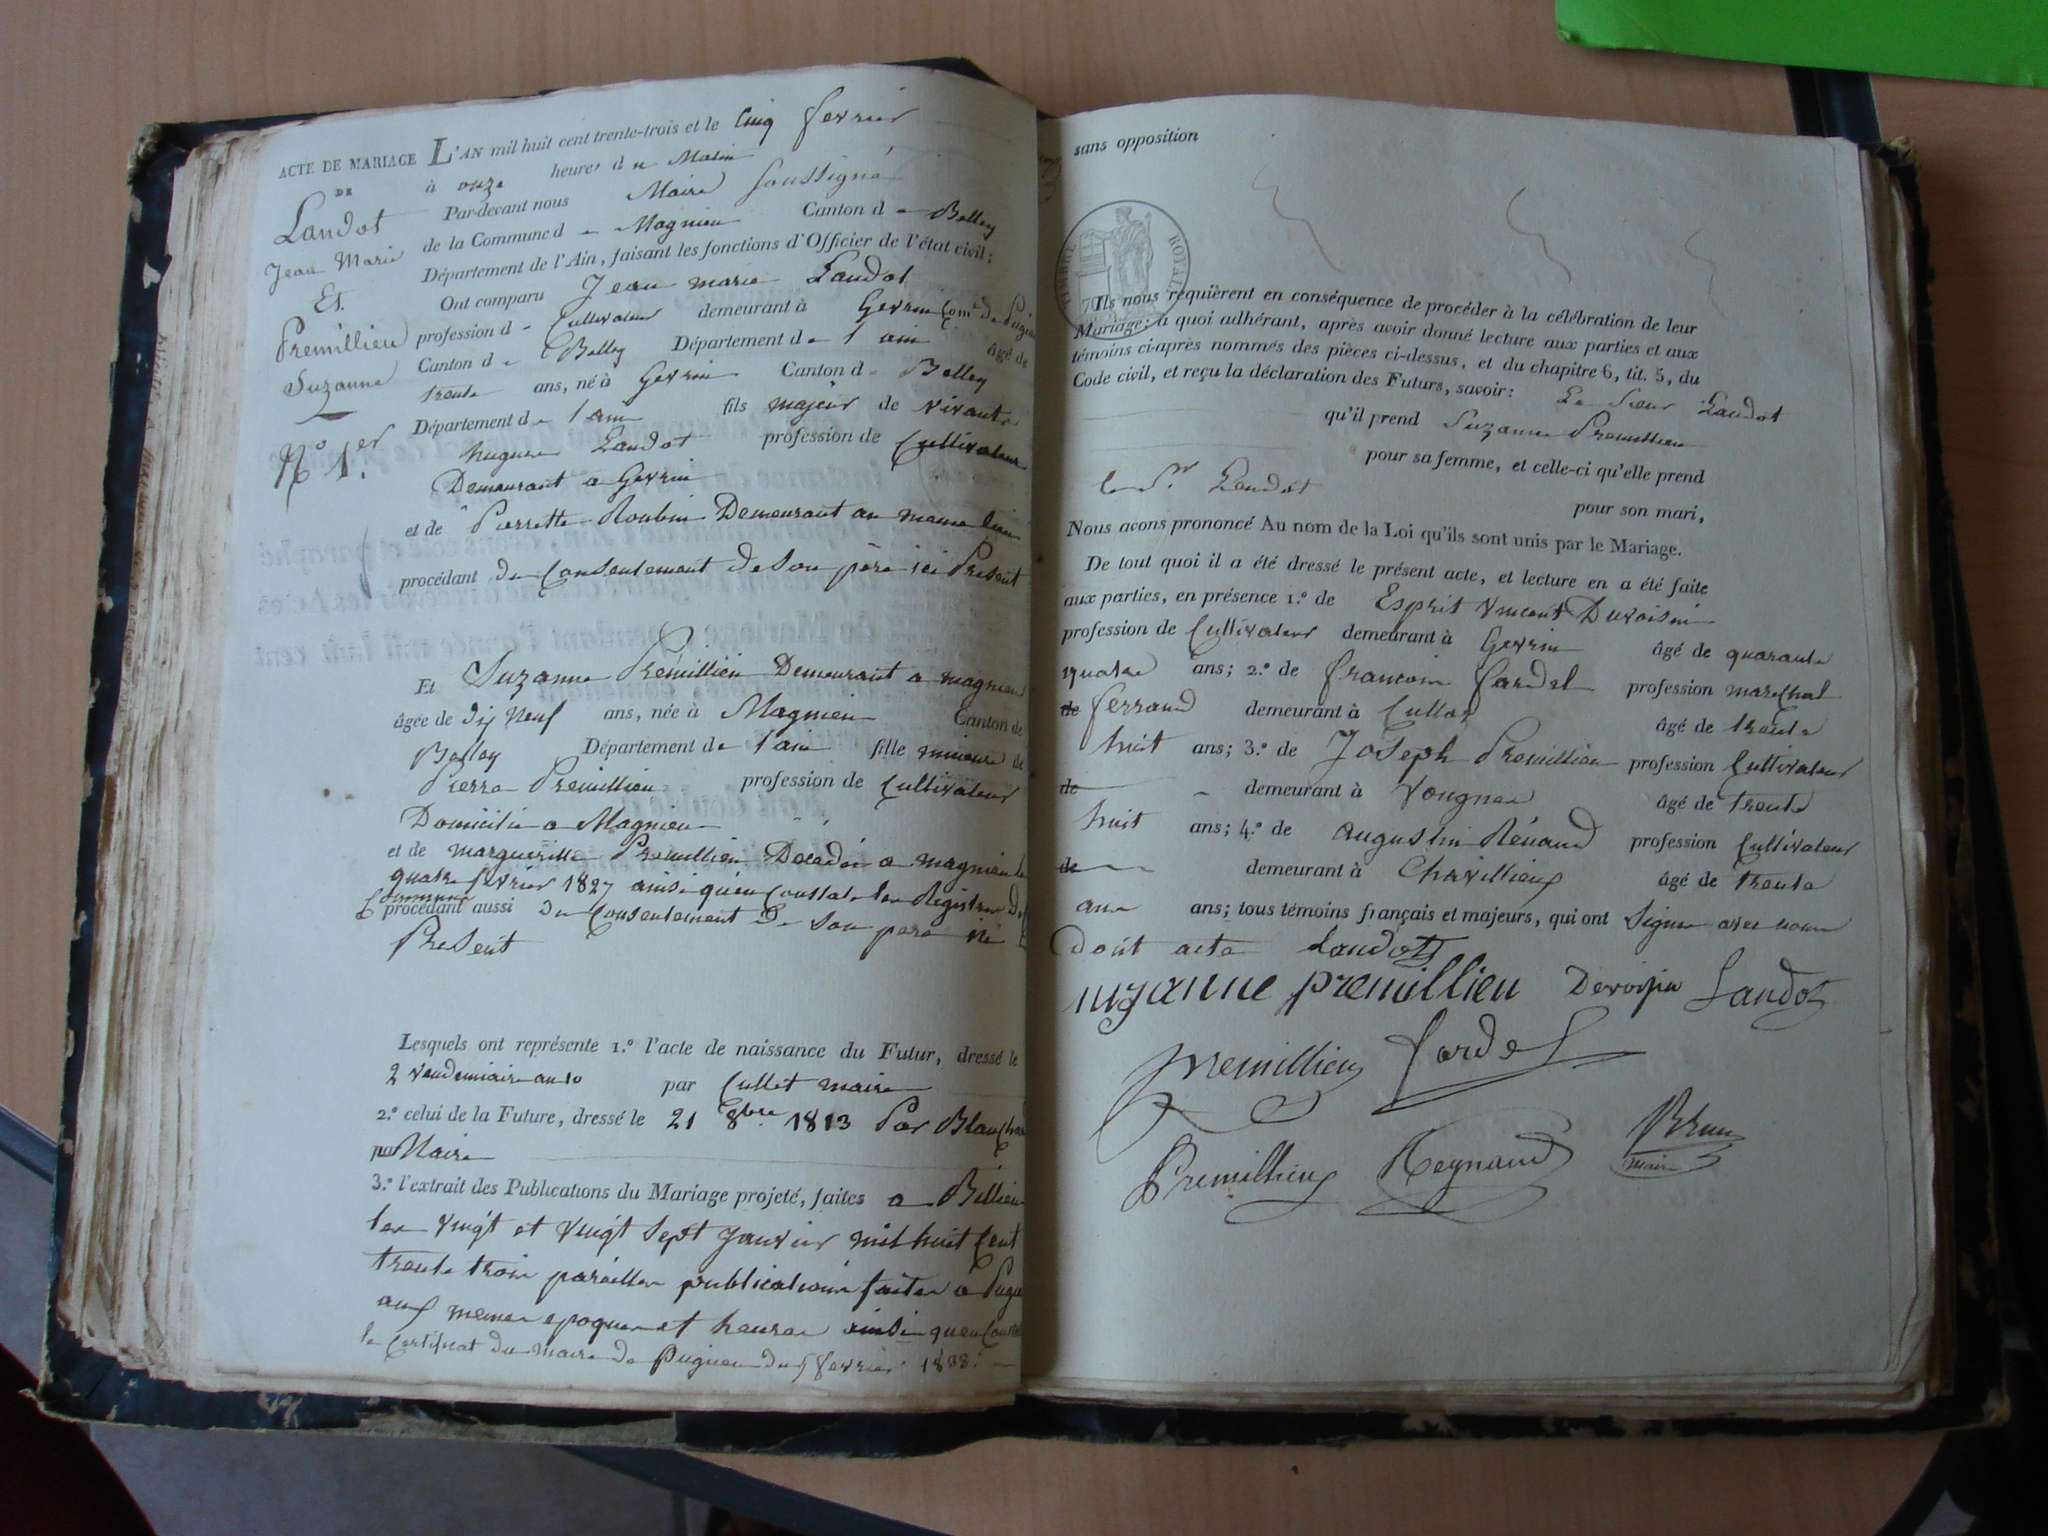 ACTE DE MARIAGE L'AN mil huit cent trente-trois et le cinq fevrier
DE
à onze heures du Matin
Landot
Par-devant nous Maire soussigné
Jean Marie
de la Commune de Magnieu Canton de Belley
Département de l'Ain, faisant les fonctions d'Officier de l'état civil;
Et
Ont comparu Jean marie Landot
Premillieu
profession de Cultivateur demeurant à Gevrin Com.e de
Suzanne
Canton de Belley Département de l ain âgé de
trente ans, né à Gevrin Canton de Belley
Département de l ain fils majeur de vivant
N.o 1.er
hugues Landot profession de Cultivateur
Demeurant a Gevrin
et de Pierrette Roubin Demeurant au meme lieu
procédant du Consentement de son père ici Present
Et Suzanne Premillieu Demeurant a magnieu
âgée de dix Neuf ans, née à Magnieu Canton de
Belley Département de l ain fille mineure de
Pierre Premillieu profession de Cultivateur
Domicilié a Magnieu
et de margueritte Premillieu Décédée a magnieu le
quatre fevrier 1827 ainsi qu'en Constate les Registres de
Commune
procédant aussi du Consentement De son pere ici
Present
Lesquels ont représente 1.o l'acte de naissance du Futur, dressé le
2 vendemiaire an 10 par Cullet maire
2.o celui de la Future, dressé le 21 8bre 1813 Par Blanchar
par Maire
3.o l'extrait des Publications du Mariage projeté, faites a Billieu
les vingt et vingt sept janvier mil huit Cent
trente trois pareilles publications faites a Pugi
aux memes epoques et heures ainsi qu'en Const
le Certificat du maire de Pugieu du 5 fevrier 1833.
sans opposition
TIMBRE ROYAL
70
Ils nous requièrent en conséquence de procéder à la célébration de leur
Mariage; à quoi adhérant, après avoir donné lecture aux parties et aux
témoins ci-après nommés des pièces ci-dessus, et du chapitre 6, tit. 5, du
Code civil, et reçu la déclaration des Futurs, savoir: Le sieur Landot
qu'il prend Suzanne Premillieu
pour sa femme, et celle-ci qu'elle prend
le S.r Landot
pour son mari,
Nous avons prononcé Au nom de la Loi qu'ils sont unis par le Mariage.
De tout quoi il a été dressé le présent acte, et lecture en a été faite
aux parties, en présence 1.o de Esprit Vincent Devoisin
profession de Cultivateur demeurant à Gevrin âgé de quarante
quatre ans; 2.o de francois fardel profession marechal
de ferrand demeurant à Culloz âgé de trente
huit ans; 3.o de Joseph Premillieu profession Cultivateur
de demeurant à Vongnes âgé de trente
huit ans; 4.o de augustin Rénaud profession Cultivateur
de demeurant à Chavillieux âgé de trente
ans; tous témoins français et majeurs, qui ont signe avec nous
dont acte Landot
suzanne premillieu Devoisin Landot
premillieu fardel
Premillieu Reynaud Brun
maire